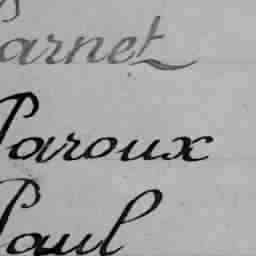 Parnet
Paroux
Paul